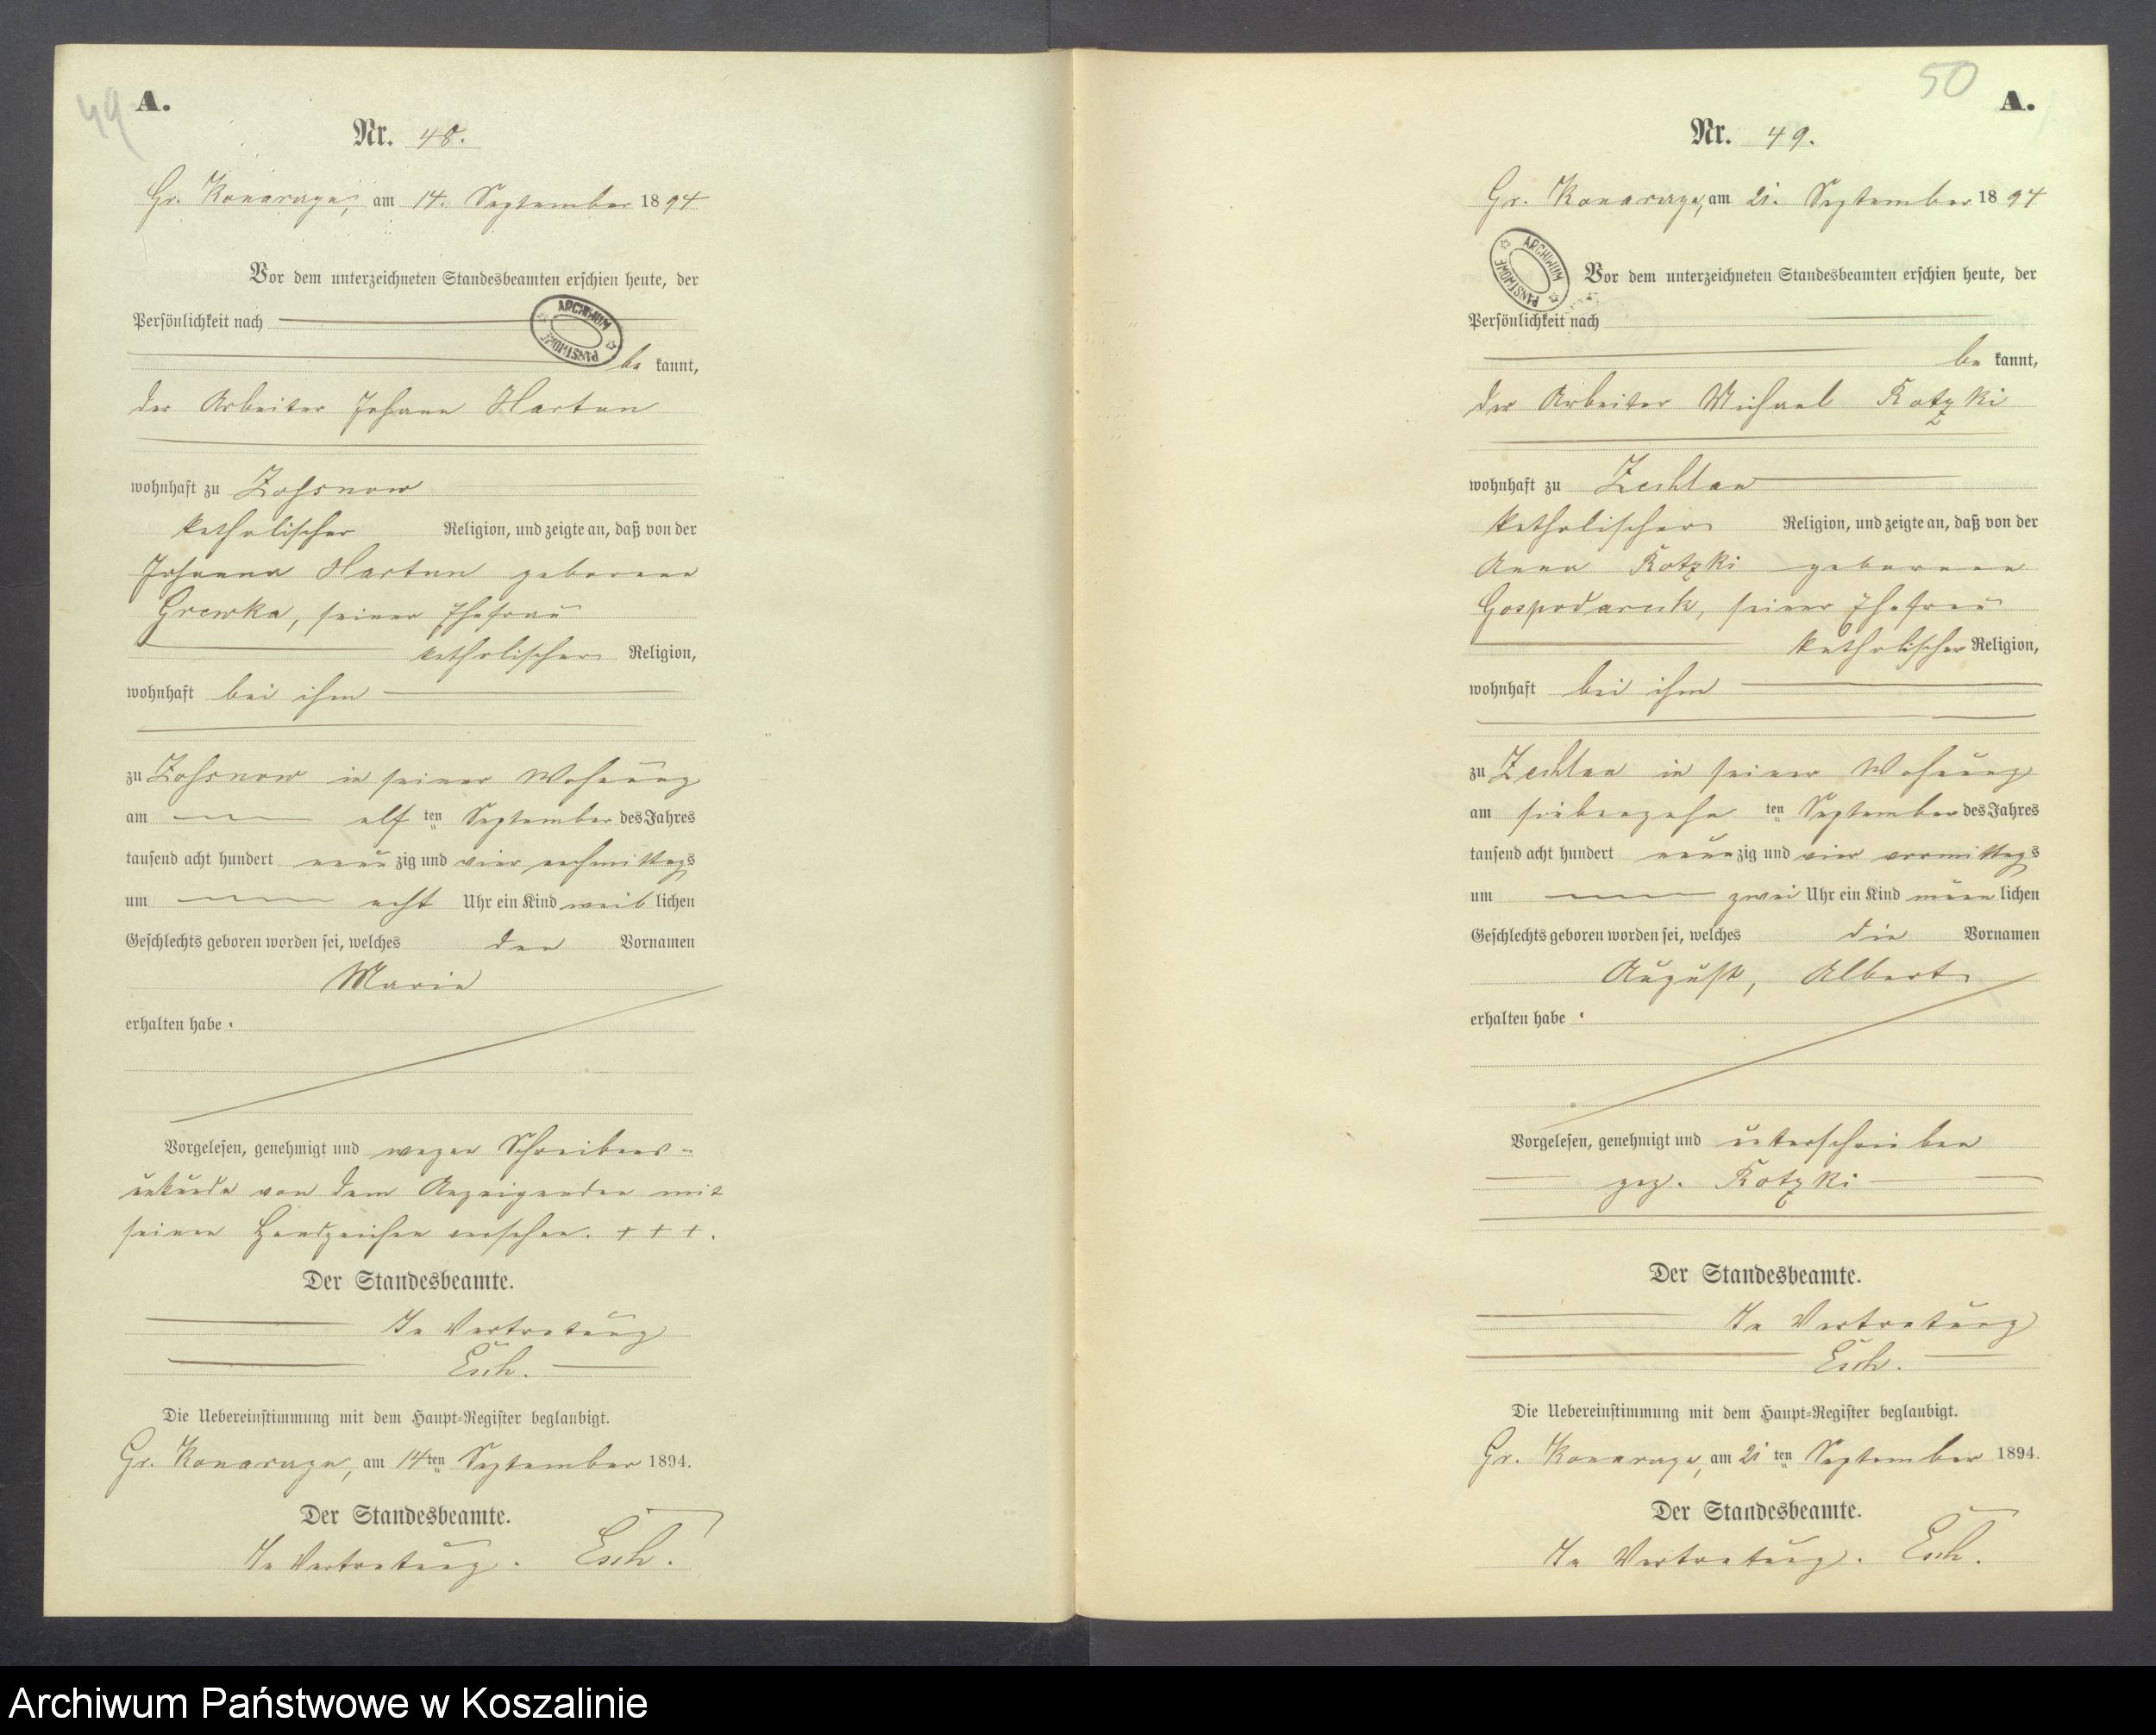 49
A.
Nr. 48.
Gr. Konarzyn, am 14. September 1894
Vor dem unterzeichneten Standesbeamten erschien heute, der
Persönlichkeit nach
ARCHIWUM PAŃSTWOWE
be kannt,
der Arbeiter Johann Hartun
wohnhaft zu Zossnow
katholischer Religion, und zeigte an, daß von der
Johanna Hartun geborene
Grewka, seiner Ehefrau
katholischer Religion,
wohnhaft bei ihm
zu Zossnow in seiner Wohnung
am elf ten September des Jahres
tausend acht hundert neun zig und vier nachmittags
um acht Uhr ein Kind weib lichen
Geschlechts geboren worden sei, welches den Vornamen
Marie
erhalten habe.
Vorgelesen, genehmigt und wegen Schreibens-
unkunde von dem Anzeigenden mit
seinen Handzeichen versehen. + + +.
Der Standesbeamte.
In Vertretung
Esch.
Die Uebereinstimmung mit dem Haupt-Register beglaubigt.
Gr. Konarzyn, am 14ten September 1894.
Der Standesbeamte.
In Vertretung. Esch.
50
A.
Nr. 49.
Gr. Konarzyn, am 21. September 1894
ARCHIWUM PAŃSTWOWE
Vor dem unterzeichneten Standesbeamten erschien heute, der
Persönlichkeit nach
be kannt,
der Arbeiter Michael Kotzki
wohnhaft zu Zechlau
katholischer Religion, und zeigte an, daß von der
Anna Kotzki geborene
Gospodarek, seiner Ehefrau
katholischer Religion,
wohnhaft bei ihm
zu Zechlau in seiner Wohnung
am siebenzehn ten September des Jahres
tausend acht hundert neunzig und vier vormittags
um zwei Uhr ein Kind männ lichen
Geschlechts geboren worden sei, welches die Vornamen
August, Albert
erhalten habe.
Vorgelesen, genehmigt und unterschrieben
gez. Kotzki
Der Standesbeamte.
In Vertretung
Esch.
Die Uebereinstimmung mit dem Haupt-Register beglaubigt.
Gr. Konarzyn, am 21 ten September 1894.
Der Standesbeamte.
In Vertretung. Esch.
Archiwum Państwowe w Koszalinie